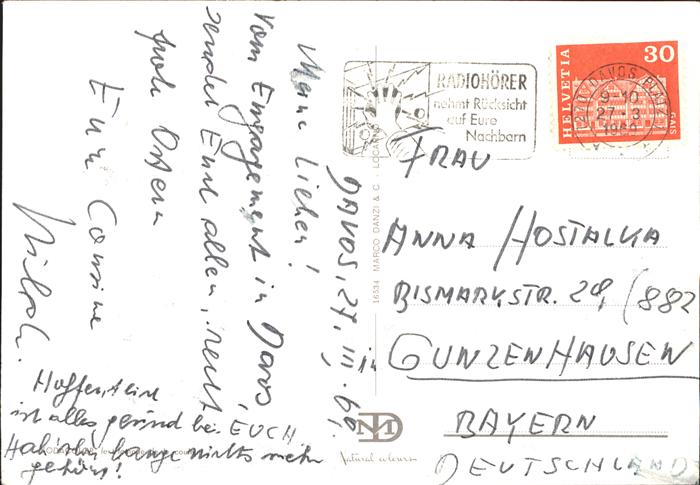 DAVOS, 27. III. 69.
Meine Lieben!
Vom Engagement in Davos
sendet Euch allen, recht
frohe Ostern
Eure Cousine
Hoffentlich
ist alles gesund bei EUCH,
Hab' schon lange nichts mehr
gehört!
RADIOHÖRER
nehmt Rücksicht
auf Eure
Nachbarn
HELVETIA
30
GAIS
DAVOS PLATZ
9-10
27. 3.
16534 MARCO DANZI & C. - LOCARNO
Natural colours
FRAU
ANNA HOSTALKA
BISMARKSTR. 29, (882
GUNZENHAUSEN
BAYERN
DEUTSCHLAND